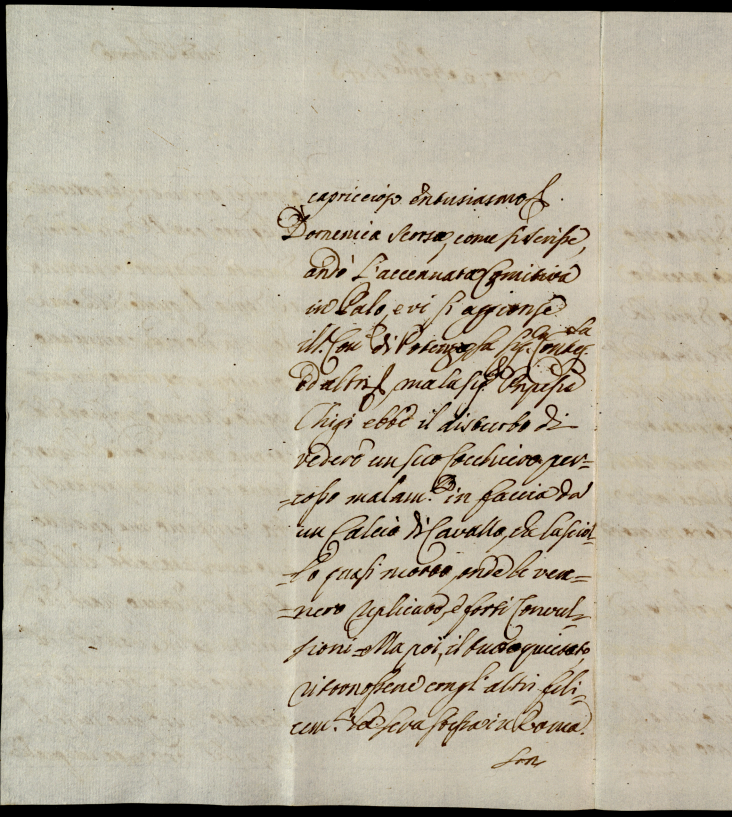 capriccioso entusiasmo.
Domenica scorsa, come si scrisse,
andò l'accennata Comitiva
in Palo, e vi si aggionse
il Con.te di Potenza, la Sig.ra Contes.sa
ed altri, ma la Sig.ra Pnpessa
Chigi ebbe il disturbo di
vedere un suo Cocchiero per-
-cosso malam.te in faccia da
un Calcio di Cavallo, che lasciol-
-lo quasi morto, onde le ven-
-nero replicate, e forti Convul-
sioni. Ma poi, il tutto quietato
ritornossene con gl'altri feli-
cem.te la sera stessa in Roma.